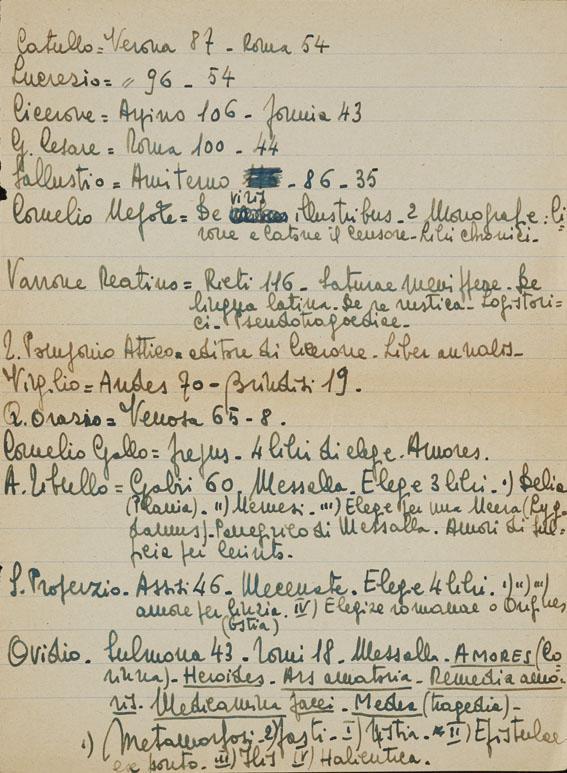 Catullo = Verona 87 - Roma 54
Lucrezio = " 96 - 54
Cicerone = Arpino 106 - Formia 43
G. Cesare = Roma 100 - 44
Sallustio = Amiterno - 86 - 35
Cornelio Nepote = De viris illustribus - 2 Monografie: Ci=
rone e Catone il Censore - Libri chronici -
Varrone Reatino = Rieti 116 - Saturae menippeae - De
lingua latina - De re rustica - Logistori=
ci - Pseudotragoediae -
T. Pomponio Attico = editore di Cicerone - Liber annalis -
Virgilio = Andes 70 - Brindisi 19.
Q. Orazio = Venosa 65 - 8.
Cornelio Gallo = Frejus - 4 libri di eleg e. Amores.
A. Tibullo = Gabii 60. Messalla. Eleg e 3 libri. I) Delia
(Plania). II) Nemesi. III) Eleg e per una Neera (Lyg
damus) - Panegirico di Messalla. Amori di Sul=
picia per Cerinto.
S. Properzio. Assisi 46 - Mecenate. Eleg e 4 libri. I) II) III)
amore per Cinzia. IV) Elegiae romanae o Origines
(Ostia)
Ovidio. Sulmona 43 - Tomi 18 - Messalla - AMORES (Co
rinna) - Heroides - Ars amatoria - Remedia amo=
ris - Medicamina faciei - Medea (tragedia) -
1) (Metamorfosi 2) Fasti - I) Tristia - II) Epistulae
ex ponto. III) Ibis IV) Halieutica.